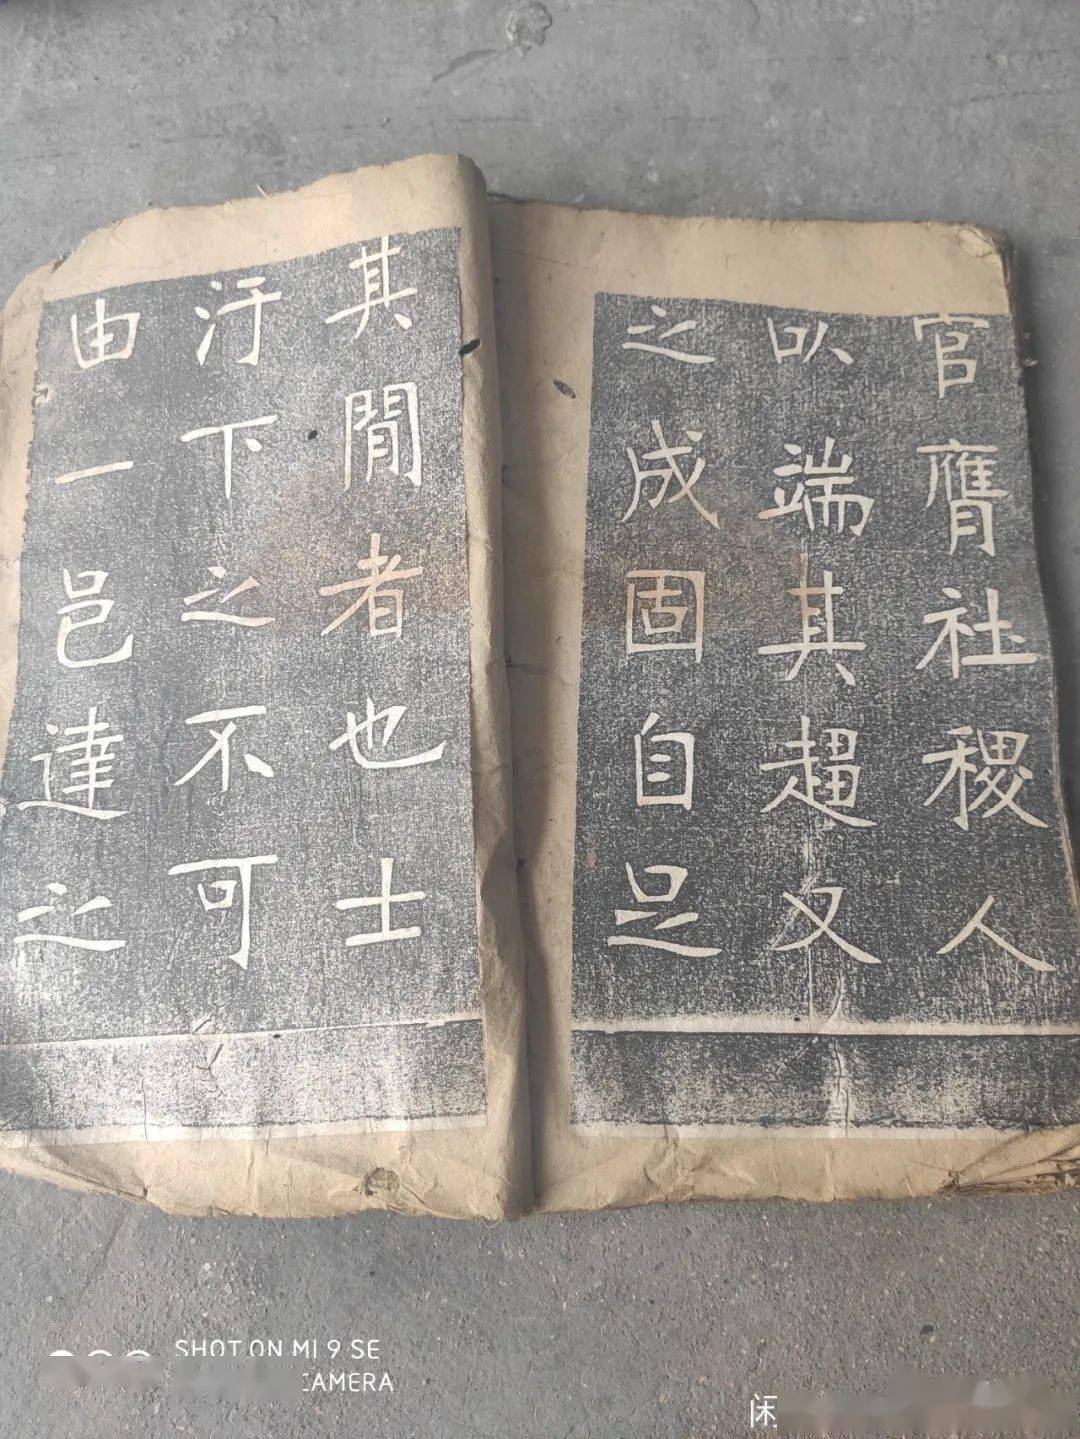 官膺社稷人
㠯端其趨又
之成固自足
其閒者也士
汙下之不可
由一邑達之
SHOT ON MI 9 SE
CAMERA
闲